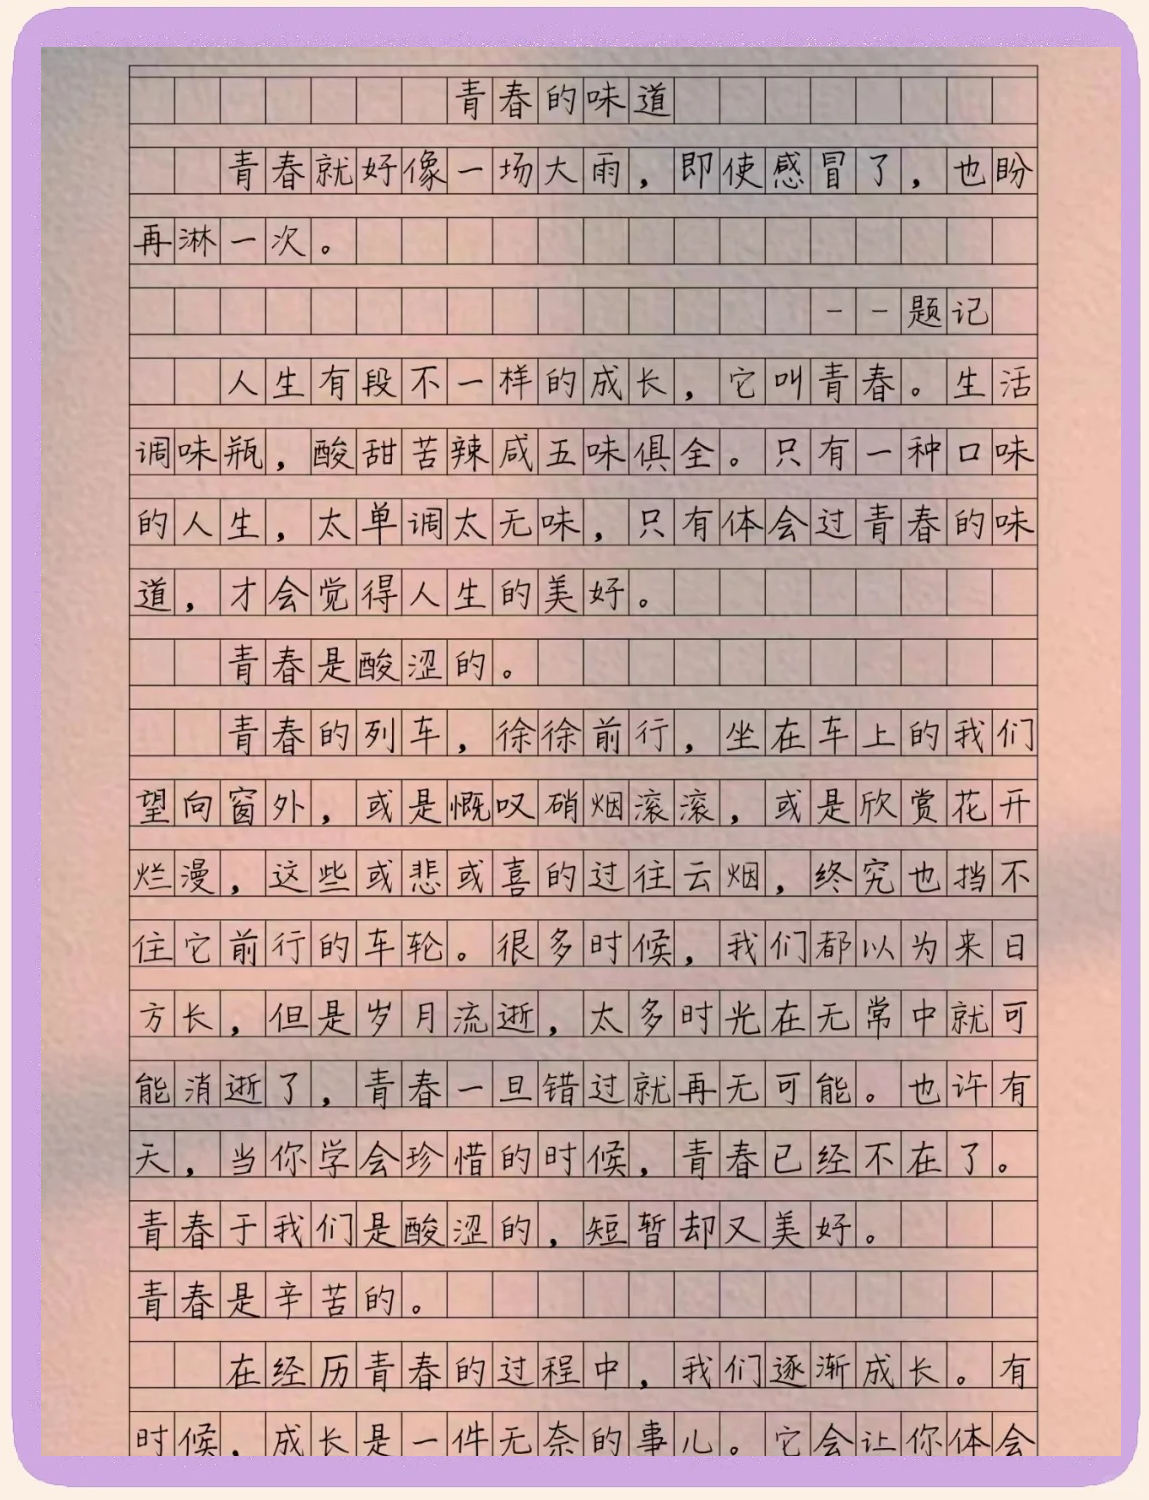 青春的味道
青春就好像一场大雨，即使感冒了，也盼
再淋一次。
——题记
人生有段不一样的成长，它叫青春。生活
调味瓶，酸甜苦辣咸五味俱全。只有一种口味
的人生，太单调太无味，只有体会过青春的味
道，才会觉得人生的美好。
青春是酸涩的。
青春的列车，徐徐前行，坐在车上的我们
望向窗外，或是慨叹硝烟滚滚，或是欣赏花开
烂漫，这些或悲或喜的过往云烟，终究也挡不
住它前行的车轮。很多时候，我们都以为来日
方长，但是岁月流逝，太多时光在无常中就可
能消逝了，青春一旦错过就再无可能。也许有
天，当你学会珍惜的时候，青春已经不在了。
青春于我们是酸涩的，短暂却又美好。
青春是辛苦的。
在经历青春的过程中，我们逐渐成长。有
时候，成长是一件无奈的事儿。它会让你体会